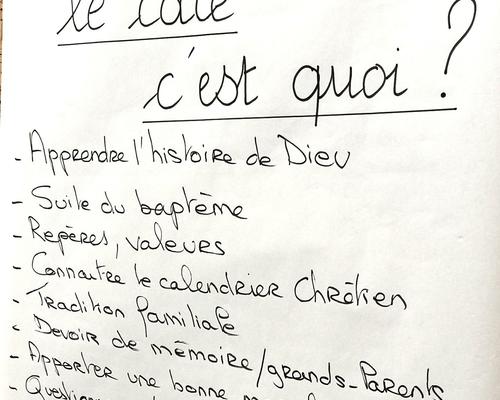 le caté
c'est quoi ?
- Apprendre l'histoire de Dieu
- Suite du baptême
- Repères, valeurs
- Connaitre le calendrier Chrétien
- Tradition familiale
- Devoir de mémoire/grands-Parents
- Apporter une bonne
-